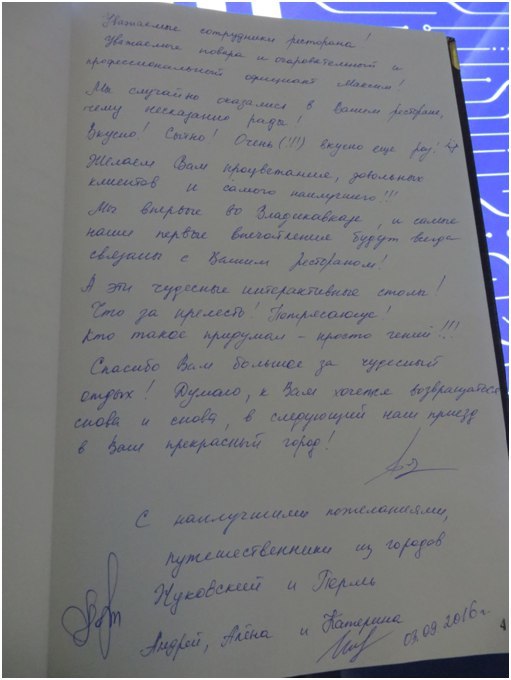 Уважаемые сотрудники ресторана!
Уважаемые повара и очаровательный и
профессиональный официант Максим!
Мы случайно оказались в Вашем ресторане,
чему несказанно рады!
Вкусно! Сытно! Очень (!!!) вкусно еще раз!
Желаем Вам процветания, довольных
клиентов и самого наилучшего!!!
Мы впервые во Владикавказе, и самые
наши первые впечатление будут всегда
связаны с Вашим рестораном!
А эти чудесные интерактивные столы!
Что за прелесть! Потрясающе!
Кто такое придумал - просто гений!!!
Спасибо Вам большое за чудесный
отдых! Думаю, к Вам хочется возвращаться
снова и снова, в следующий наш приезд
в Ваш прекрасный город!
С наилучшими пожеланиями,
путешественники из городов
Жуковский и Пермь
Андрей, Алёна и Катерина
09.2016г.
4